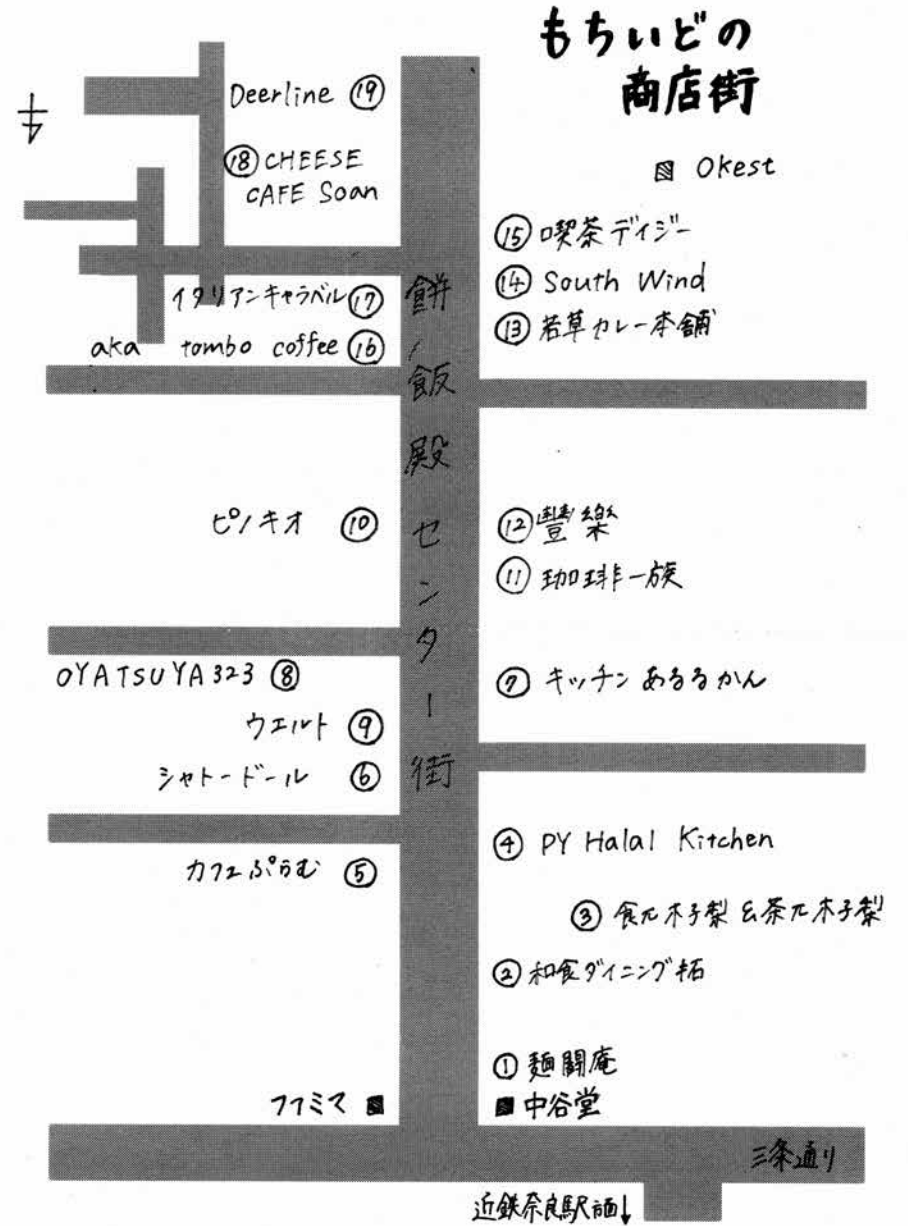 もちいどの
商店街
Deerline ⑲
⑱ CHEESE
CAFE Soan
▨ Okest
⑮ 喫茶デイジー
⑭ South Wind
⑬ 若草カレー本舗
イタリアンキャラバル⑰
aka tombo coffee ⑯
餅飯殿センター街
ピノキオ ⑩
⑫ 豐樂
⑪ 珈琲一族
OYATSUYA323 ⑧
⑦ キッチンあるるかん
ウエルト ⑨
シャトードール ⑥
カフェぷらむ ⑤
④ PY Halal Kitchen
③ 食元木子梨&茶元木子梨
② 和食ダイニング拓
① 麺闘庵
ファミマ
中谷堂
三条通り
近鉄奈良駅↓